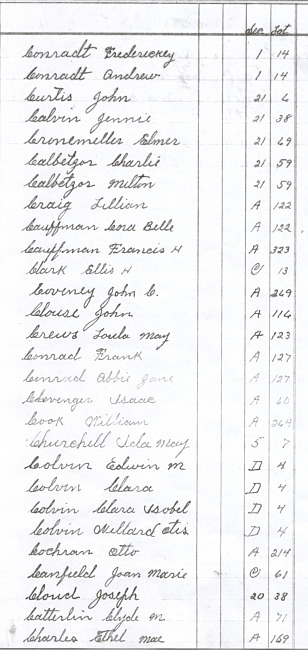 Sec Lot
Conradt Frederickey 1 14
Conradt Andrew 1 14
Curtis John 21 6
Calvin Jennie 21 38
Cronemeller Elmer 21 69
Calbetzor Charlie 21 59
Calbetzor Milton 21 59
Craig Lillian A 122
Cauffman Cora Belle A 122
Cauffman Francis H A 323
Clark Ellis H C 13
Coverney John C. A 249
Clouse John A 114
Crews Loula May A 123
Conrad Frank A 127
Conrad Abbie Jane A 127
Clevenger Isaac A 60
Cook William A 264
Churchell Ida May 5 7
Colvin Edwin M D 4
Colvin Clara D 4
Colvin Clara Isobel D 4
Colvin Willard Otis D 4
Cochran Otto A 214
Canfield Joan Marie C 61
Cloud Joseph 20 38
Catterlin Clyde M A 71
Charles Ethel Mae A 169